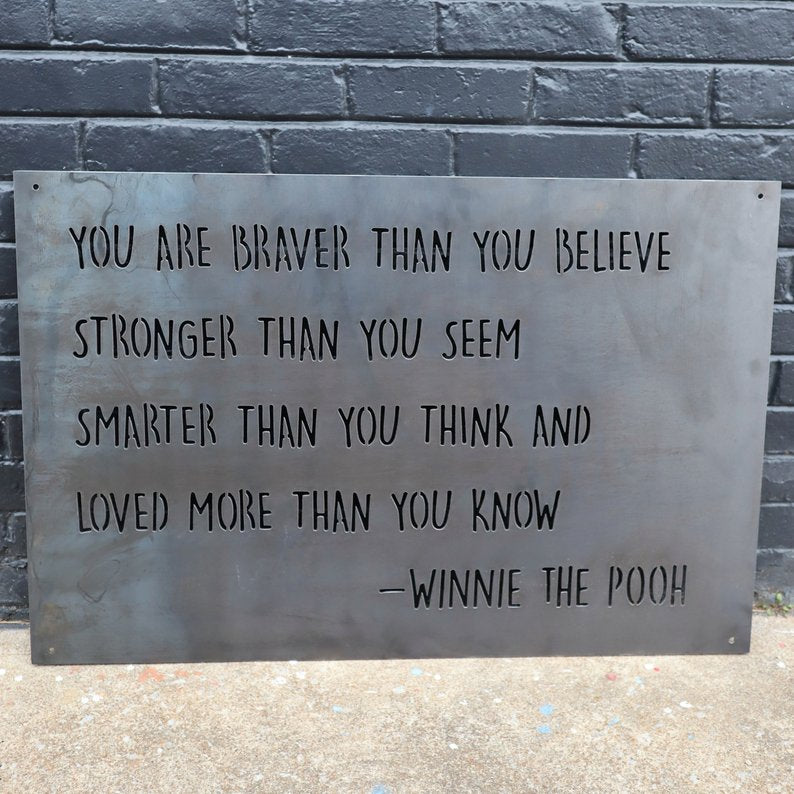 YOU ARE BRAVER THAN YOU BELIEVE
STRONGER THAN YOU SEEM
SMARTER THAN YOU THINK AND
LOVED MORE THAN YOU KNOW
–WINNIE THE POOH